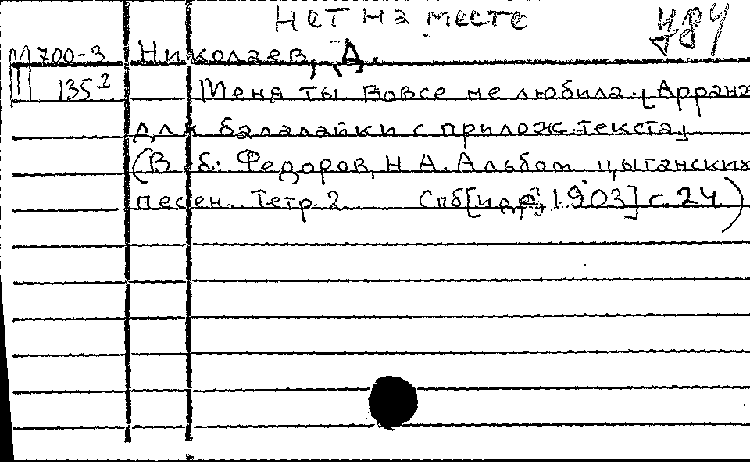 нет на месте 784
М 700-3 Николаев, Д.
135² Меня ты вовсе не любила. [Арранж
для балалайки с прилож. текста]
(В сб: Федоров, Н. А. Альбом цыганских
песен. Тетр. 2. Спб [и др., 1903] с. 24.)